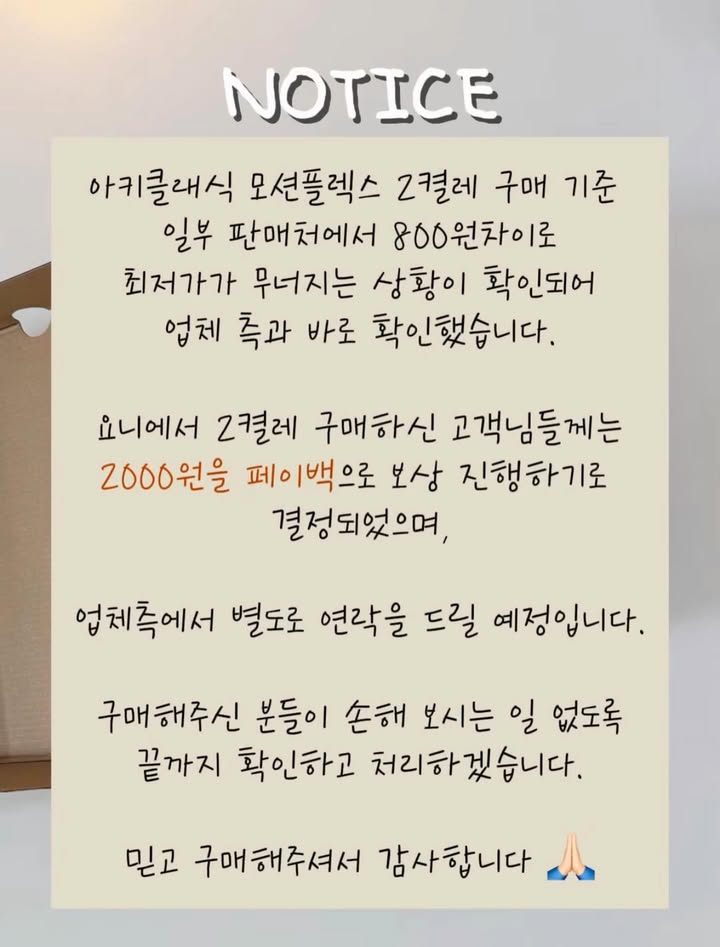 NOTICE
아키클래식 모션플렉스 2켤레 구매 기준
일부 판매처에서 800원차이로
최저가가 무너지는 상황이 확인되어
업체 측과 바로 확인했습니다.
요니에서 2켤레 구매하신 고객님들께는
2000원을 페이백으로 보상 진행하기로
결정되었으며,
업체측에서 별도로 연락을 드릴 예정입니다.
구매해주신 분들이 손해 보시는 일 없도록
끝까지 확인하고 처리하겠습니다.
믿고 구매해주셔서 감사합니다 🙏🏻